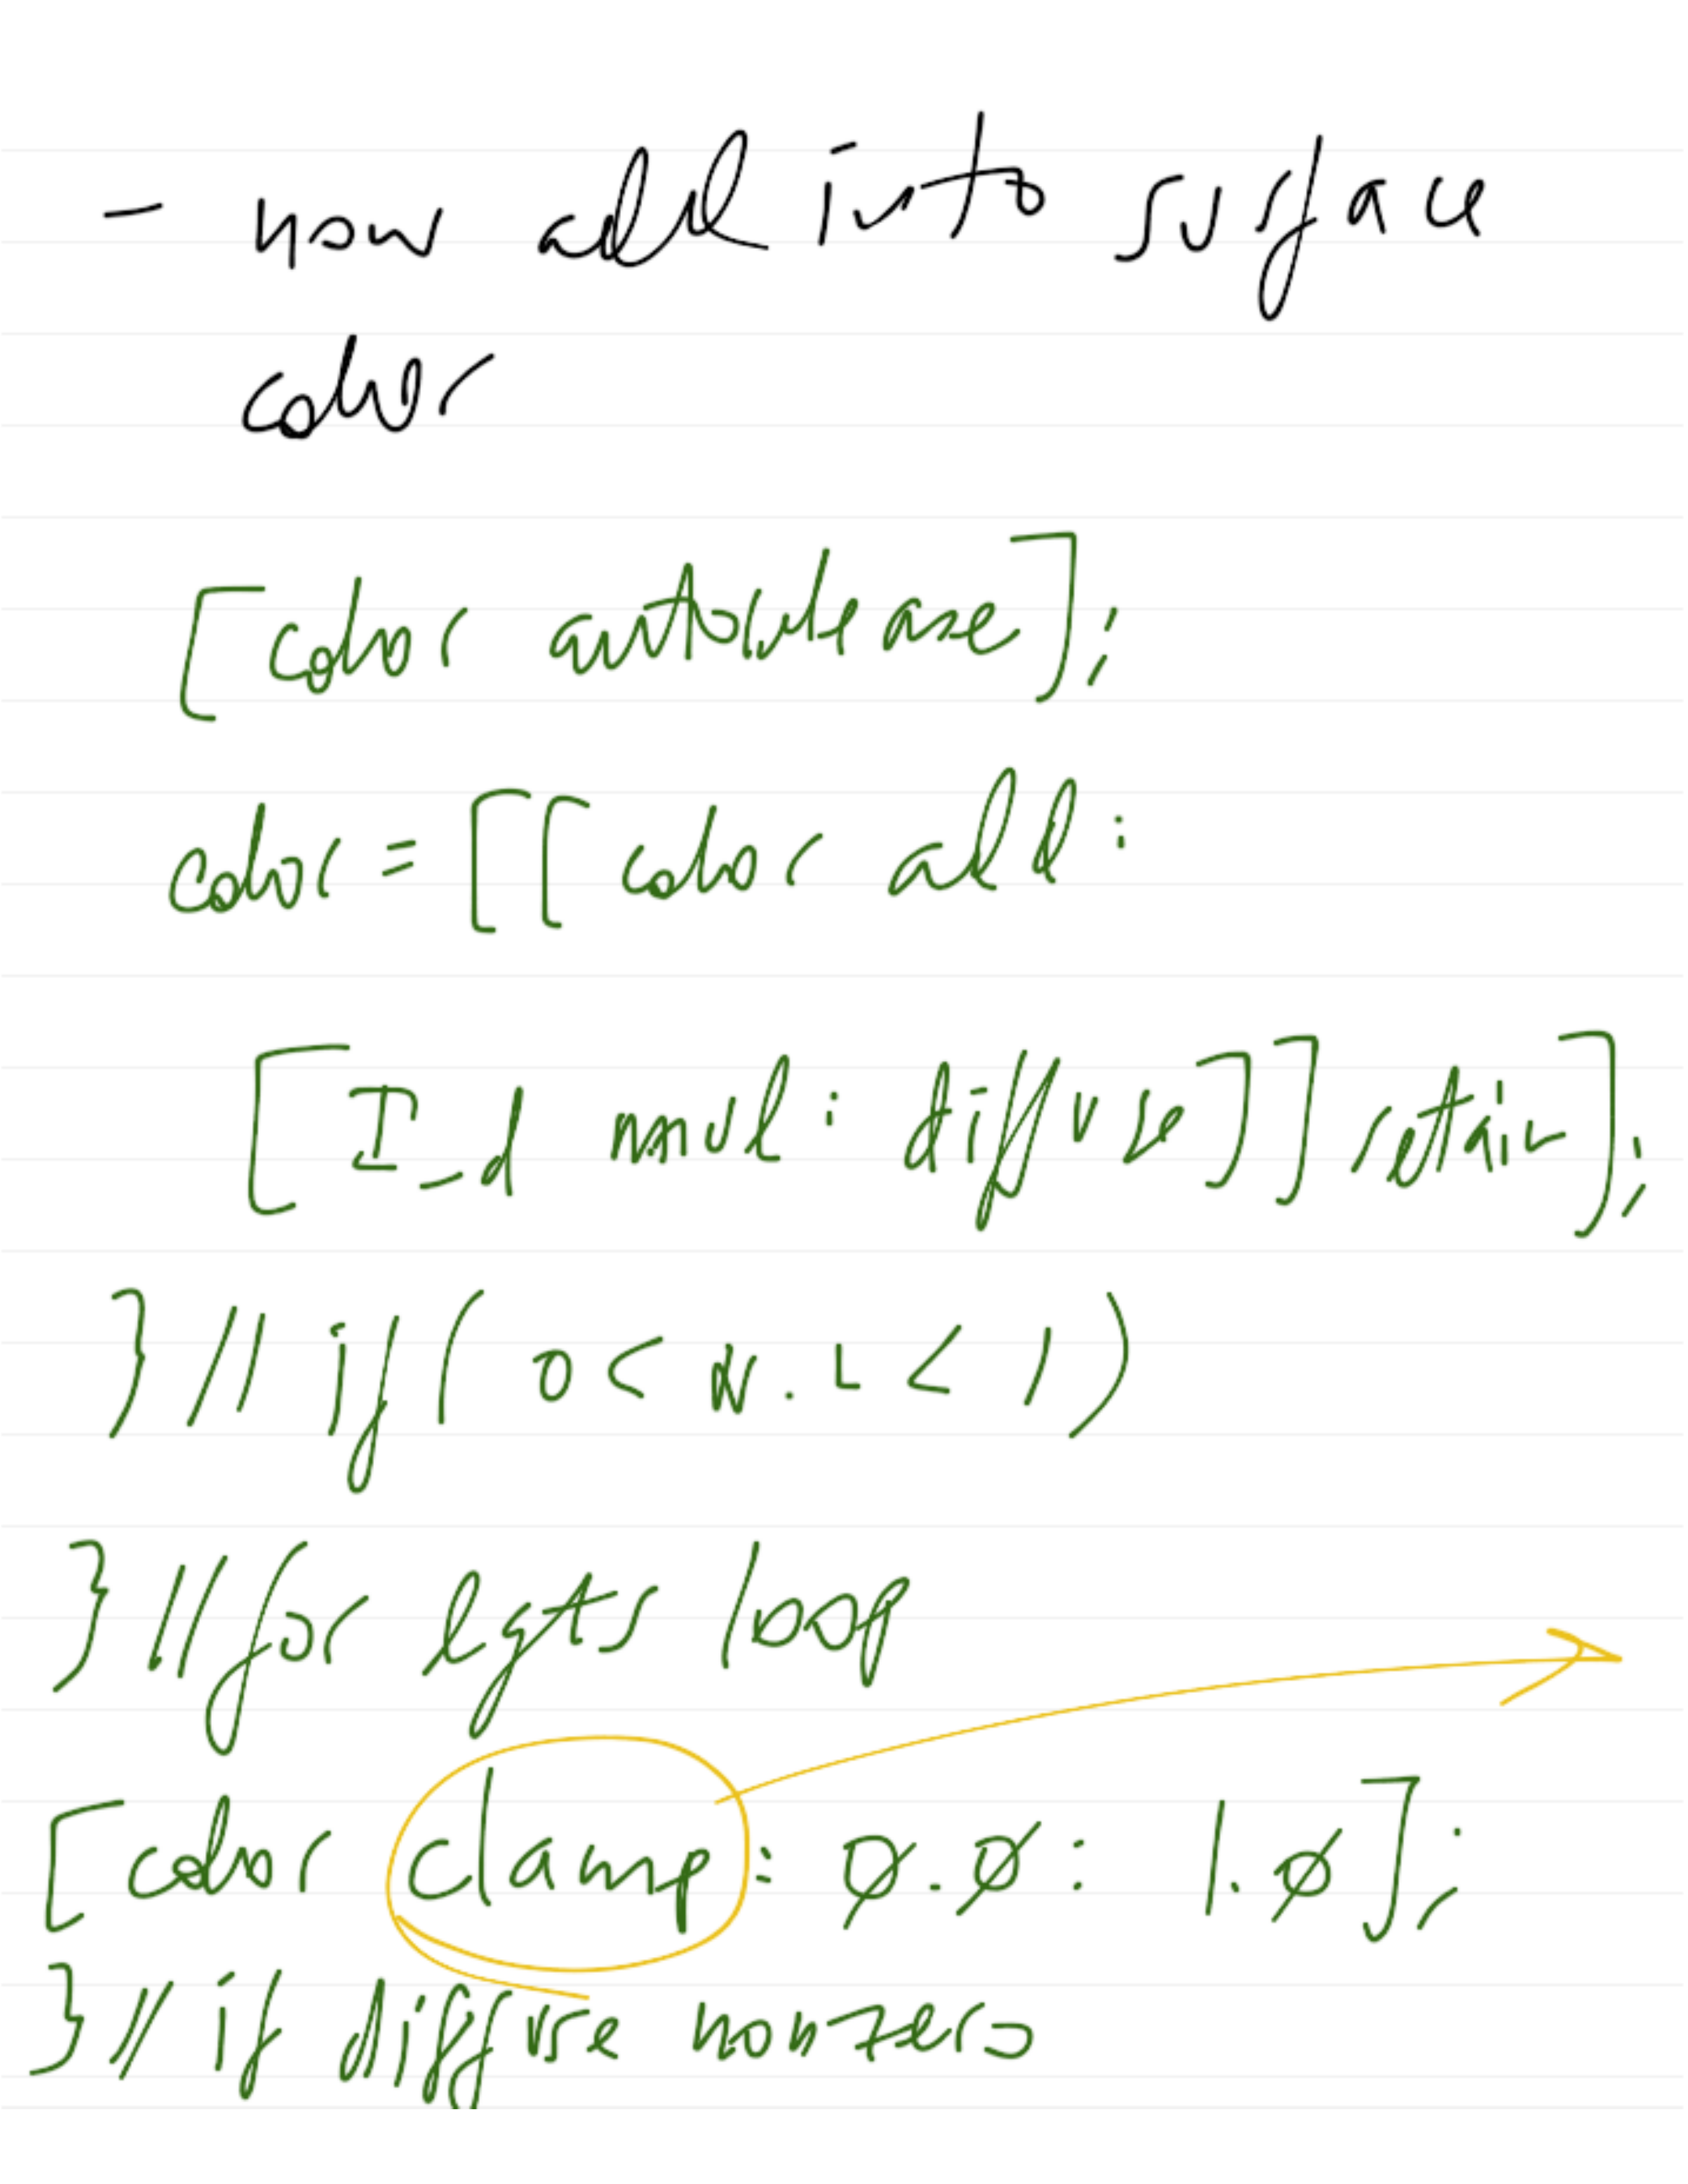 - now add into surface
color
[color autorelease];
color = [[color add:
[I_d mul: diffuse]] retain];
} // if (0 < N.L < 1)
} // for lgts loop
[color clamp: 0.0: 1.0];
} // if diffuse nonzero